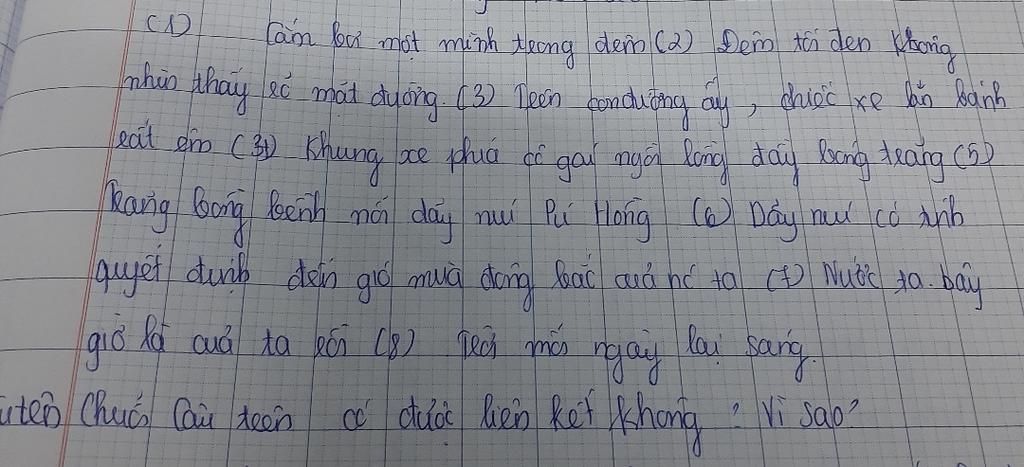 (1) Cắm bơi một mình trong đêm (2) Đêm tối đen không
nhìn thấy rõ mặt đường. (3) Trên con đường ấy, chiếc xe lăn bánh
rất êm (4) Khung xe phía cô gái ngồi lồng đầy bóng trăng (5)
Trăng bồng bềnh nổi dãy núi Pú Hồng (6) Dãy núi có ảnh
quyết định đến gió mùa đông bắc của nc ta (7) Nước ta bây
giờ là của ta rồi (8) Trời mới ngày lại sáng.
Chuỗi câu trên có được liên kết không? Vì sao?